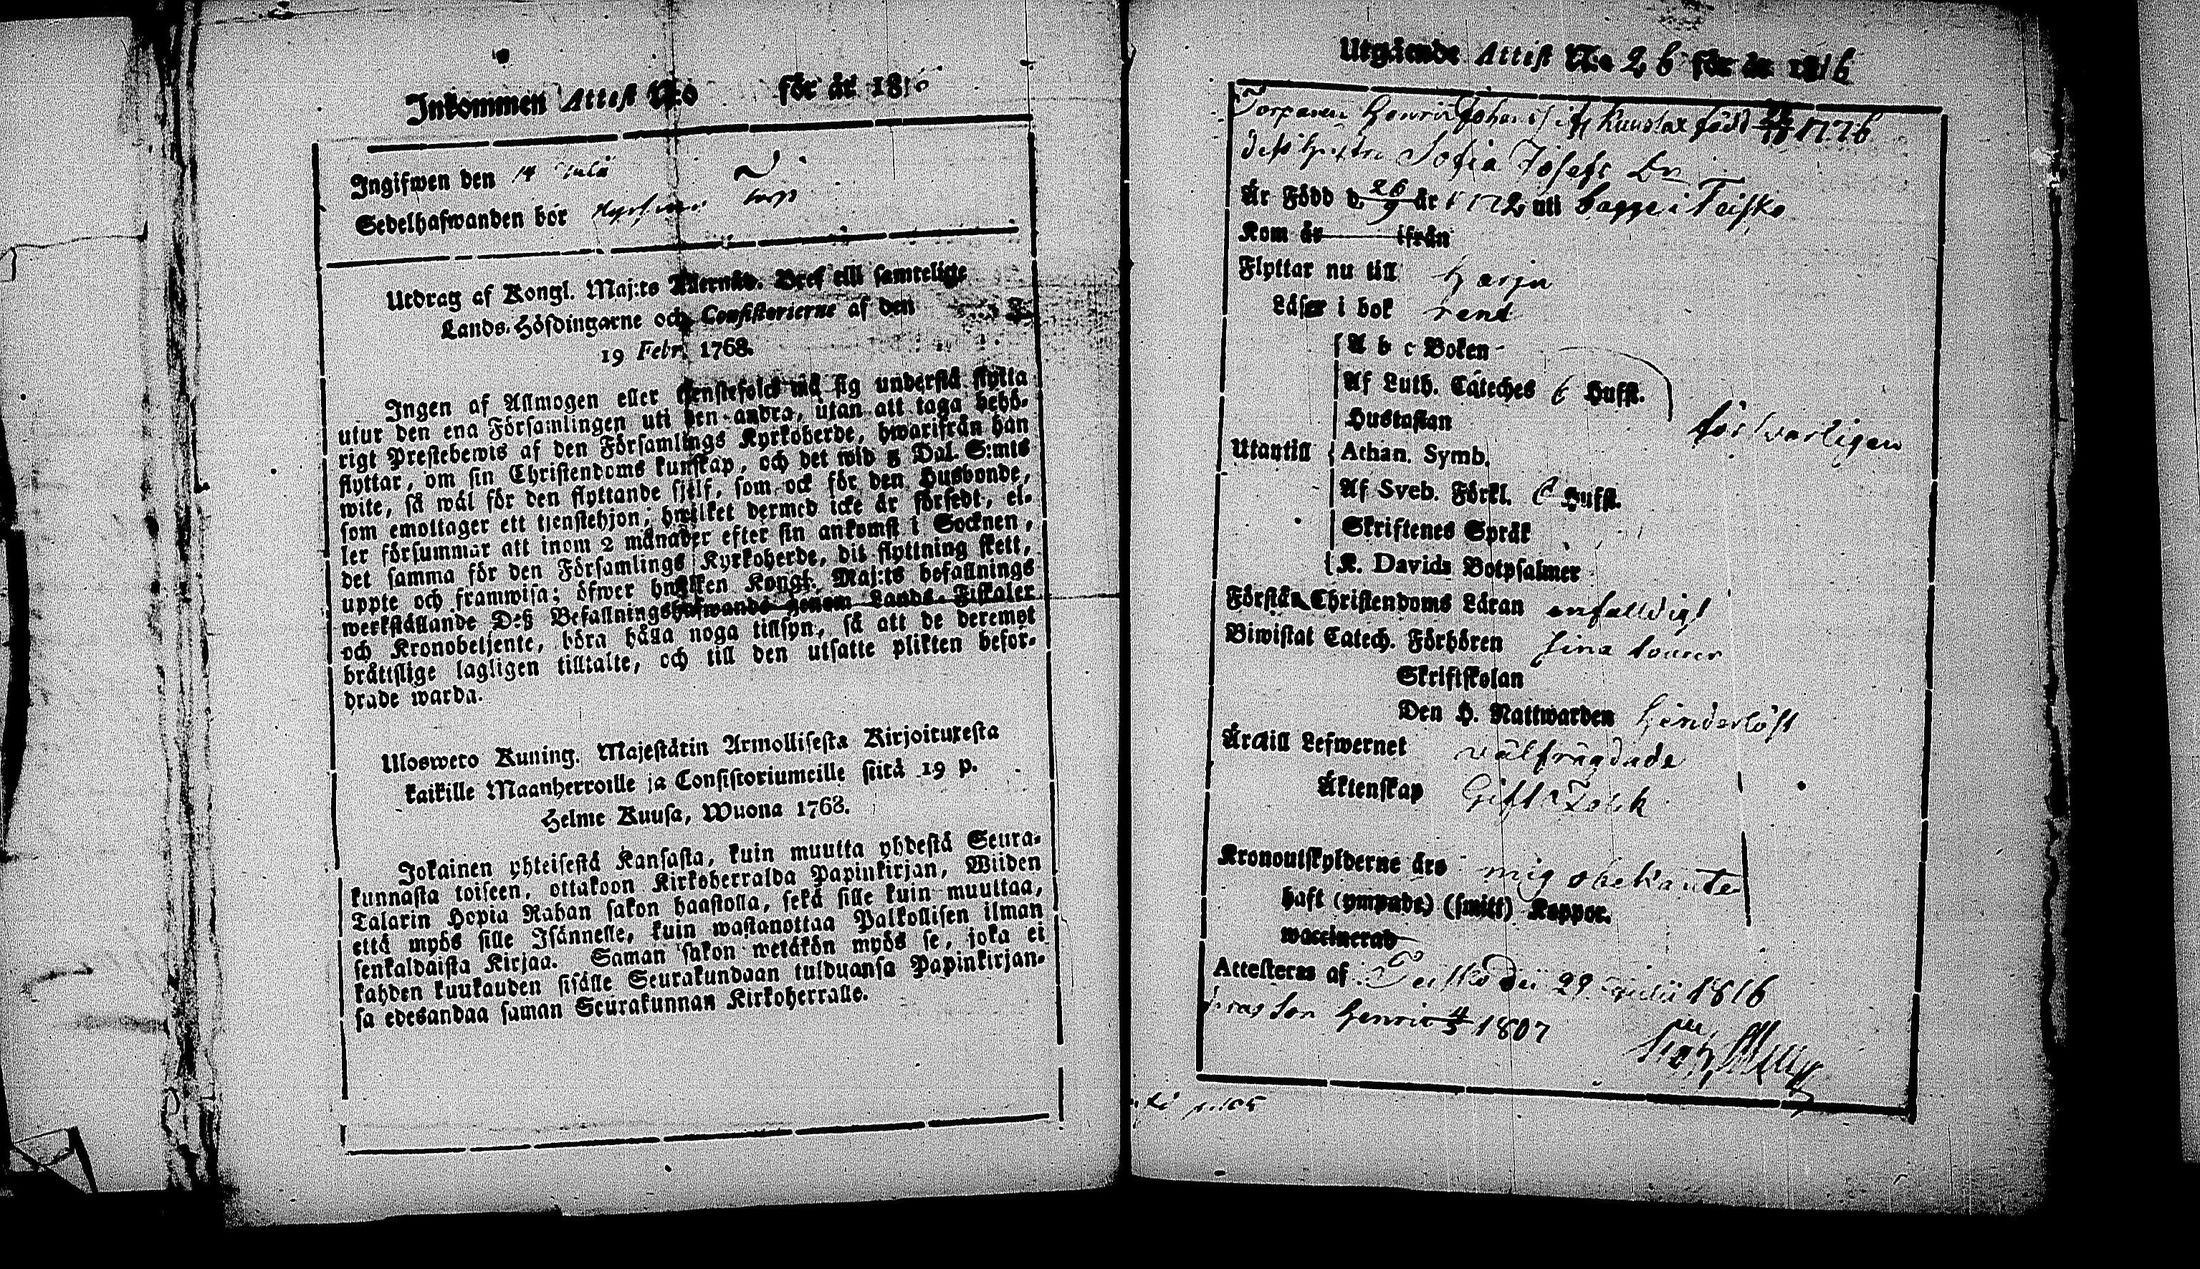 Inkommen Attest N:o för år 1816
Ingifwen den 14 Julii
Sedelhafwanden bor
Utdrag af Kongl. Maj:ts Allernåd. Bref till samtelige
Lands-Höfdingarne och Consistorierne af den
19 Febr. 1768.
Ingen af Allmogen eller tjenstefolck må sig understå flytta
utur den ena Församlingen uti den andra, utan att taga behö-
rigt Prestebewis af den Församlings Kyrkoherde, hwarifrån han
flyttar, om sin Christendoms kunskap, och det wid 5 Dal. S:mts
wite, så wäl för den flyttande sjelf, som ock för den Husbonde,
som emottager ett tjenstehjon; hwilket dermed icke är försedt, el-
ler försummar att inom 2 månader efter sin ankomst i Socknen,
det samma för den Församlings Kyrkoherde, dit flyttning skett,
uppte och framwisa; öfwer hwilken Kongl. Maj:ts befallnings
werkställande Deß Befallningshafwande genom Lands-Fiskaler
och Kronobetjente, böra hålla noga tillsyn, så att de deremot
bråttslige lagligen tilltalte, och till den utsatte plikten befor-
drade warda.
Uloswero Kuning. Majestätin Armollisesta Kirjoituxesta
kaikille Maanherroille ja Consistoriumeille siitä 19 p.
Helme Kuusa, Wuona 1768.
Jokainen yhteisestä Kansasta, kuin muutta yhdestä Seura-
kunnasta toiseen, ottakoon Kirkoherralda Papinkirjan, Wiiden
Talarin Hopia Rahan sakon haastolla, sekä sille kuin muuttaa,
että myös sille Isännelle, kuin wastanottaa Palkollisen ilman
senkaldaista Kirjaa. Saman sakon wetäkön myös se, joka ei
kahden kuukauden sisälle Seurakundaan tulduansa Papinkirjan-
sa edesandaa saman Seurakunnan Kirkoherralle.
Utgående Attest N:o 26 för år 1816
Torparen Henric Johansson Kuuslax född 1776
dess hustru Sofia Josefs Dr
Är Född d. 26/9 år 1772 uti Bagge i Teisko
Kom år ifrån
Flyttar nu till Harju
Läser i bok rent
A b c Boken
Af Luth. Cateches 6 Hufst.
Hustaflan
försvarligen
Utantill Athan. Symb.
Af Sveb. Förkl. 6 Hufst.
Skriftenes Språk
K. Davids Botpsalmer
Förstår Christendoms Läran enfaldigt
Biwistat Catech. Förhören sina tourer
Skriftskolan
Den H. Nattwarden hinderlöst
Är till Lefwernet wälfrägdade
Äktenskap Gift Folck
Kronoutskylderne äro mig obekante
haft (ympade) (smitt) Koppor.
waccinerad
Attesteras af Teisko d. 29 Julii 1816
deras Son Henric 4/5 1807